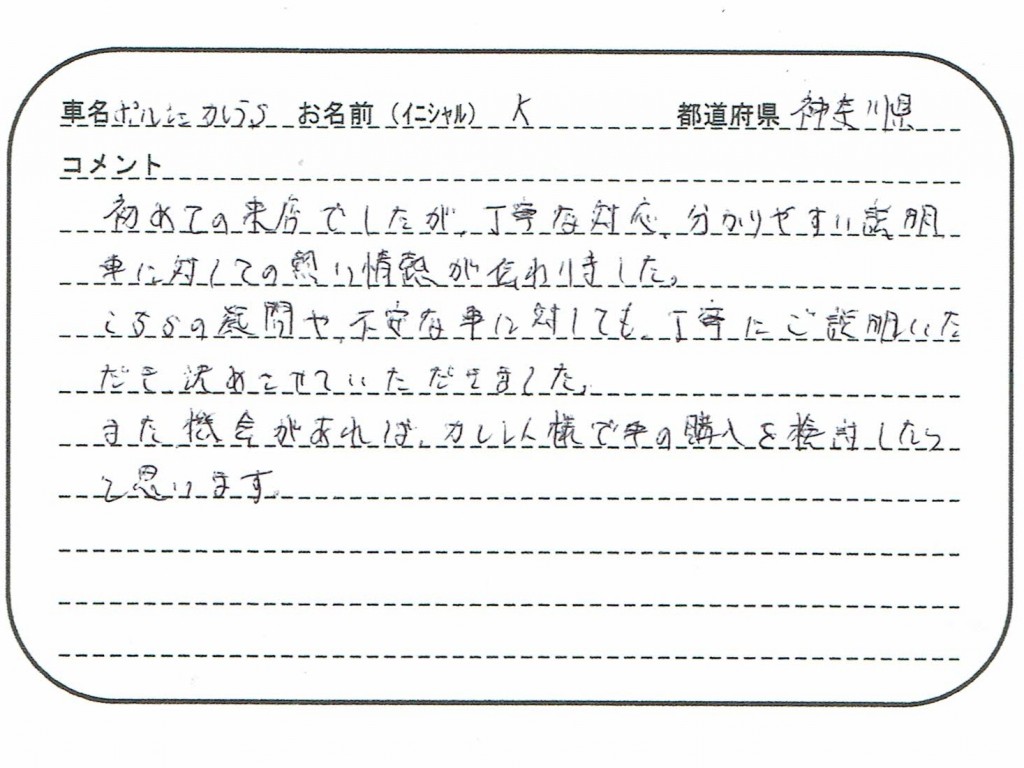 車名 ポルシェ カレラS お名前（イニシャル） K 都道府県 神奈川県
コメント
初めての来店でしたが、丁寧な対応、分かりやすい説明
車に対しての熱い情熱が伝わりました。
こちらの疑問や、不安な事に対しても、丁寧にご説明いた
だき決めさせていただきました。
また機会があれば、カレント様で車の購入を検討したい
と思います。